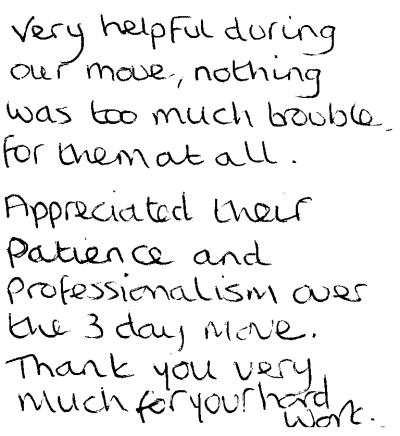 Very helpful during
our move, nothing
was too much trouble
for them at all.
Appreciated their
Patience and
Professionalism over
the 3 day move.
Thank you very
much for your hard
work.